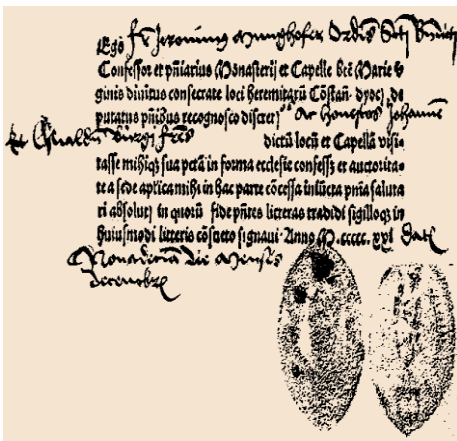 Ego fr Jeronimus Munghofer Ordis Scti
Confessor et pñiarius Monasterij et Capelle btē Marie v
ginis diuitus consecrate loci heremitarū Cōstañ. dyoc̄. de
putatus pñibus recognosco discret ac honestos Johannē
et Oswaldū bürgi frēs dictū locū et Capellā visi-
tasse mihiqȝ sua pctā in forma ecclesie confessȝ et auctorita-
te a sede aplica mihi in hac parte cōcessa iniūcta pñia saluta
ri absoluj in quorū fide pñtes litteras tradidi sigilloqȝ in
huiusmodi litteris cōsueto signaui Anno M.ccccc.xxj. Datȝ
die Mensis
decembrȝ